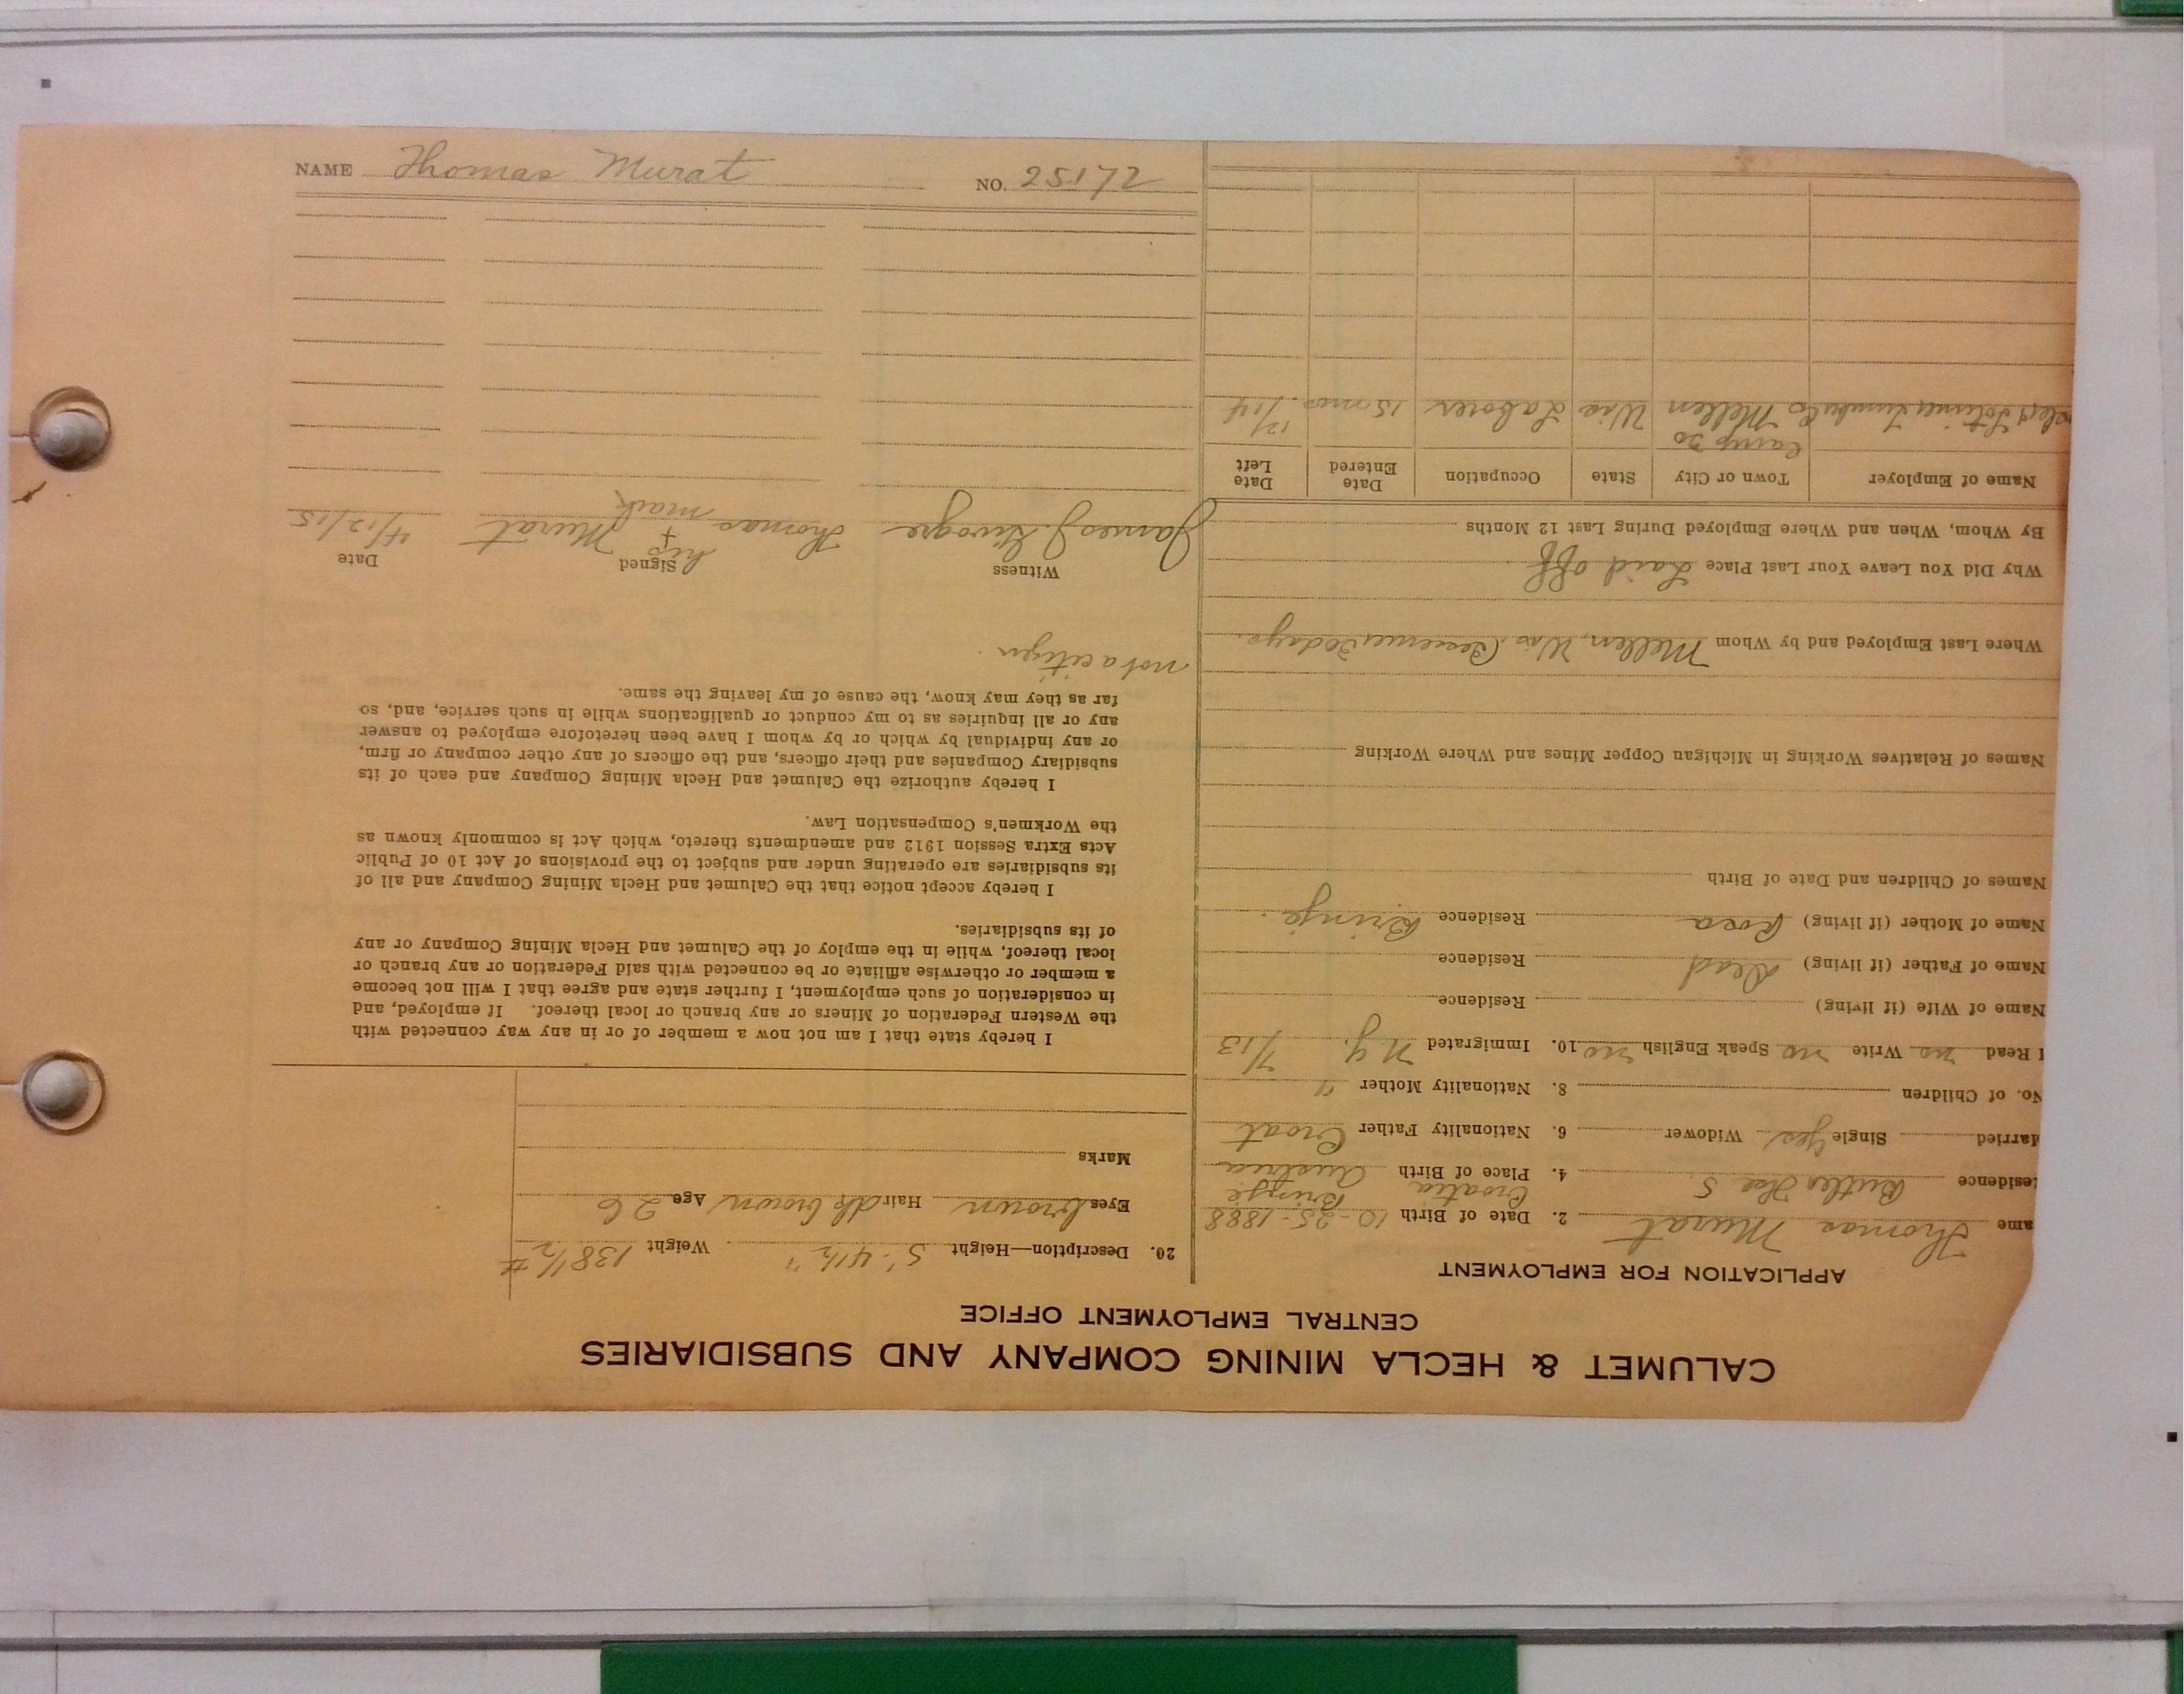 NAME Thomas Murat NO. 25172
CALUMET & HECLA MINING COMPANY AND SUBSIDIARIES
CENTRAL EMPLOYMENT OFFICE
APPLICATION FOR EMPLOYMENT
ame Thomas Murat 2. Date of Birth 10-25-1888
Croatia Brinje
esidence Butler Hse S. 4. Place of Birth Austria
arried Single Yes Widower 6. Nationality Father Croat
No. of Children 8. Nationality Mother "
Read no Write no Speak English no 10. Immigrated N.Y. 7/13
Name of Wife (if living) Residence
Name of Father (if living) Dead Residence
Name of Mother (if living) Rosa Residence Brinje.
Names of Children and Date of Birth
Names of Relatives Working in Michigan Copper Mines and Where Working
Where Last Employed and by Whom Mellen, Wis.
Why Did You Leave Your Last Place Laid off
By Whom, When and Where Employed During Last 12 Months
Name of Employer Town or City State Occupation Date Entered Date Left
Camp 20 12/14
Mellen Wis Laborer 15 mos.
20. Description—Height 5'-4 1/2" Weight 138 1/2 #
Eyes brown Hair dk brown Age 26
Marks
I hereby state that I am not now a member of or in any way connected with
the Western Federation of Miners or any branch or local thereof. If employed, and
in consideration of such employment, I further state and agree that I will not become
a member or otherwise affiliate or be connected with said Federation or any branch or
local thereof, while in the employ of the Calumet and Hecla Mining Company or any
of its subsidiaries.
I hereby accept notice that the Calumet and Hecla Mining Company and all of
its subsidiaries are operating under and subject to the provisions of Act 10 of Public
Acts Extra Session 1912 and amendments thereto, which Act is commonly known as
the Workmen's Compensation Law.
I hereby authorize the Calumet and Hecla Mining Company and each of its
subsidiary Companies and their officers, and the officers of any other company or firm,
or any individual by which or by whom I have been heretofore employed to answer
any or all inquiries as to my conduct or qualifications while in such service, and, so
far as they may know, the cause of my leaving the same.
not a citizen.
Witness Signed Date
James J. Thomas his + mark Murat 4/12/15